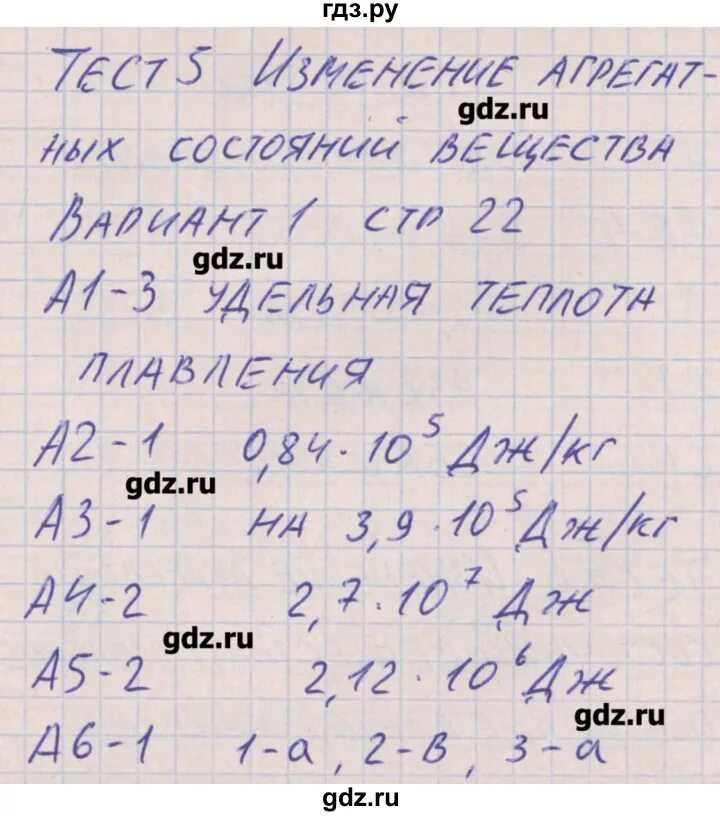 гдз.ру
ТЕСТ 5 ИЗМЕНЕНИЕ АГРЕГАТ-
gdz.ru
НЫХ СОСТОЯНИЙ ВЕЩЕСТВА
ВАРИАНТ 1 СТР 22
gdz.ru
А1-3 УДЕЛЬНАЯ ТЕПЛОТА
ПЛАВЛЕНИЯ
А2-1 0,84·10⁵ Дж/кг
gdz.ru
А3-1 НА 3,9·10⁵ Дж/кг
А4-2 2,7·10⁷ Дж
gdz.ru
А5-2 2,12·10⁶ Дж
gdz.ru
А6-1 1-а, 2-в, 3-а
gdz.ru